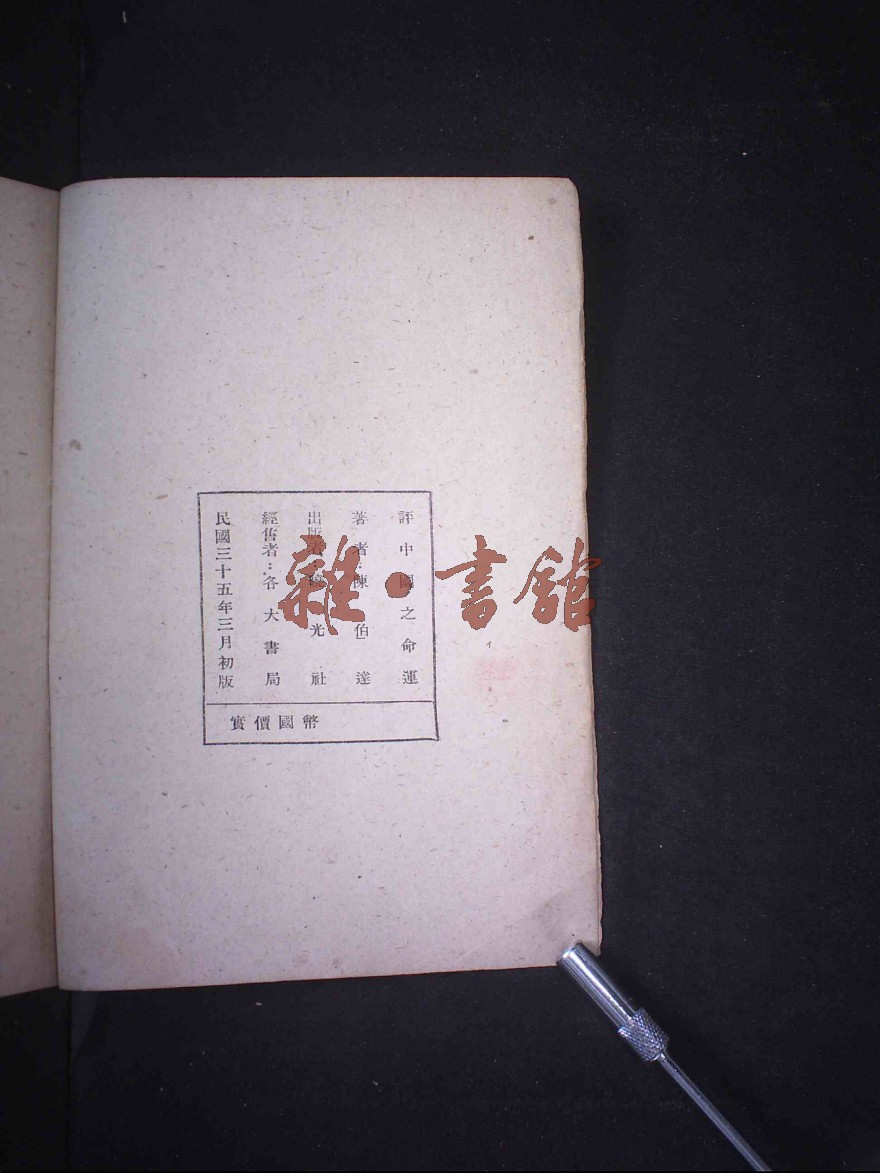 評中國之命運
著者：陳伯達
出版者： 光社
經售者：各大書局
民國三十五年三月初版
實價國幣
雜·書館